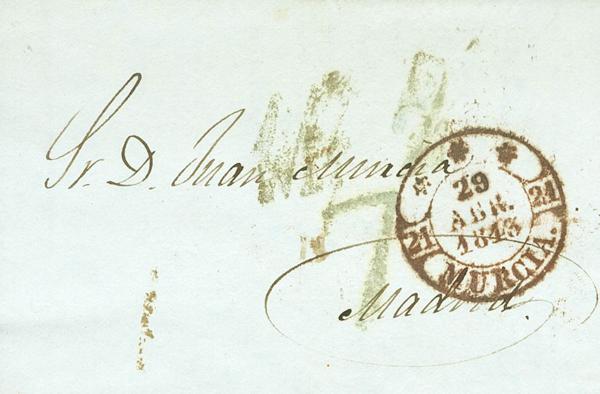 Sr. D. Juan Murcia
Madrid.
29
ABR.
1843
21 MURCIA. 21